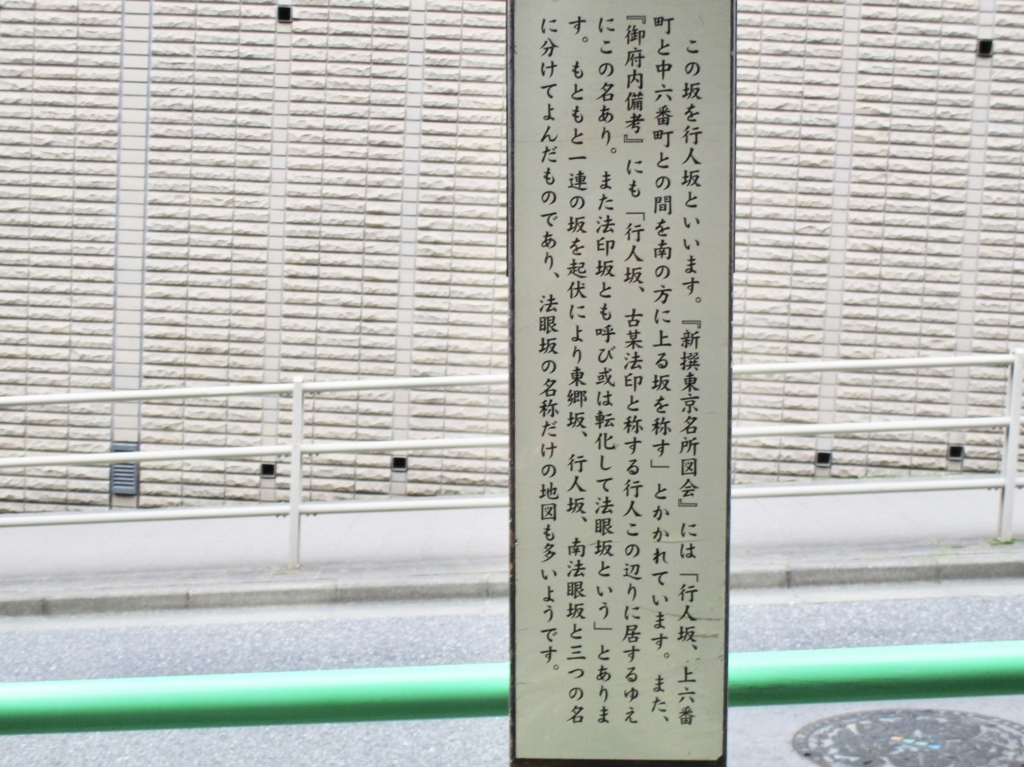 この坂を行人坂といいます。『新撰東京名所図会』には「行人坂、上六番
町と中六番町との間を南の方に上る坂を称す」とかかれています。また、
『御府内備考』にも「行人坂、古某法印と称する行人この辺りに居するゆえ
にこの名あり。また法印坂とも呼び或は転化して法眼坂という」とありま
す。もともと一連の坂を起伏により東郷坂、行人坂、南法眼坂と三つの名
に分けてよんだものであり、法眼坂の名称だけの地図も多いようです。